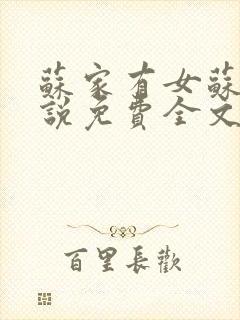 蘇家有女蘇
說免費全文
百里長歡